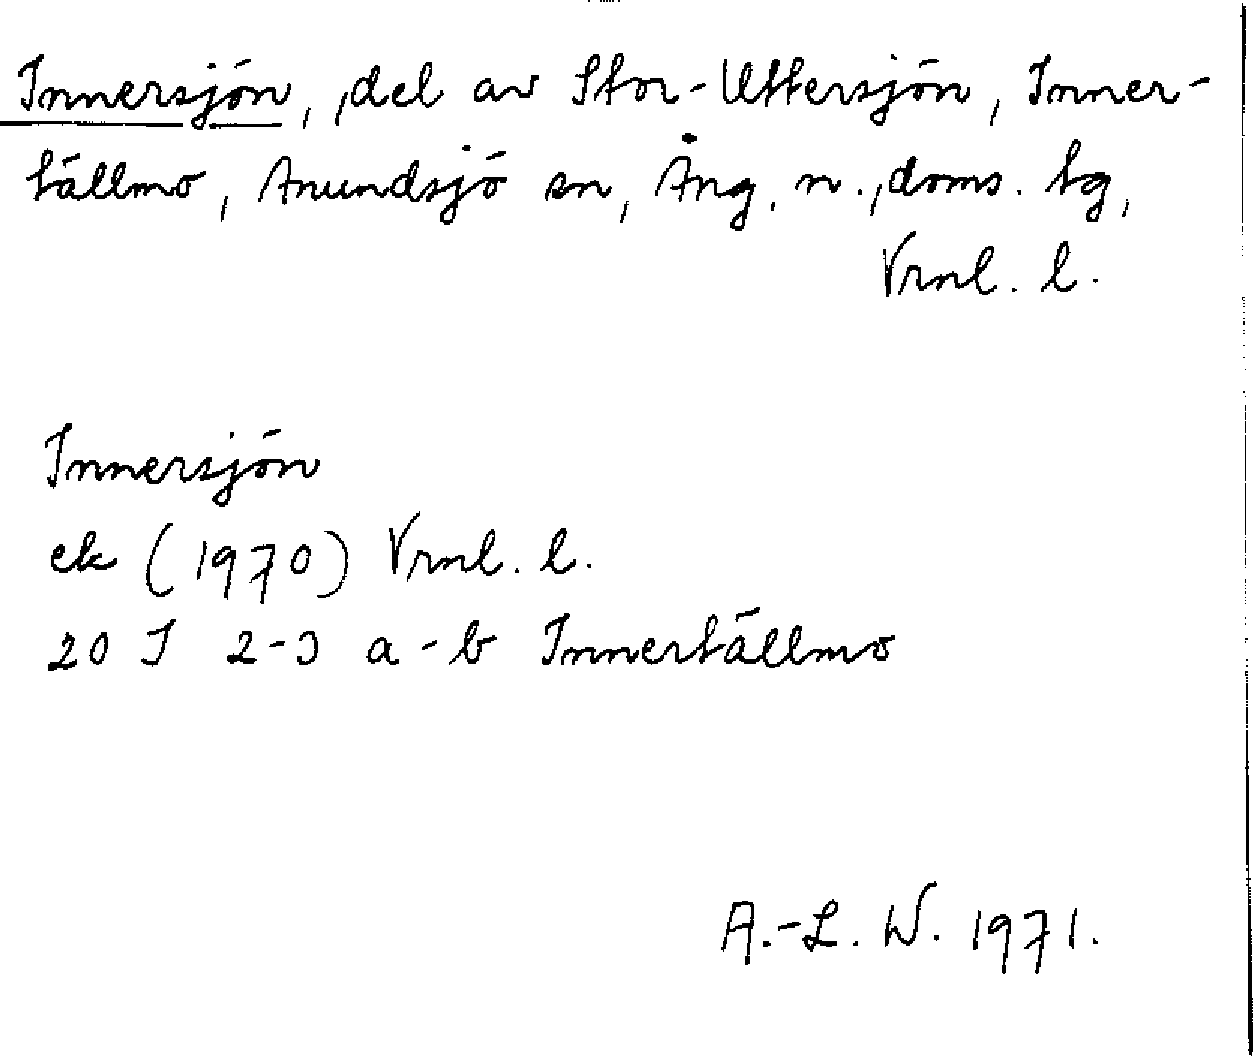 Innersjön, del av Stor-Uttersjön, Inner-
tällmo, Anundsjö sn, Ång. n. doms. tg,
Vrnl. l.
Innersjön
ek (1970) Vrnl. l.
20 I 2-3 a-b Innertällmo
A.-L. W. 1971.